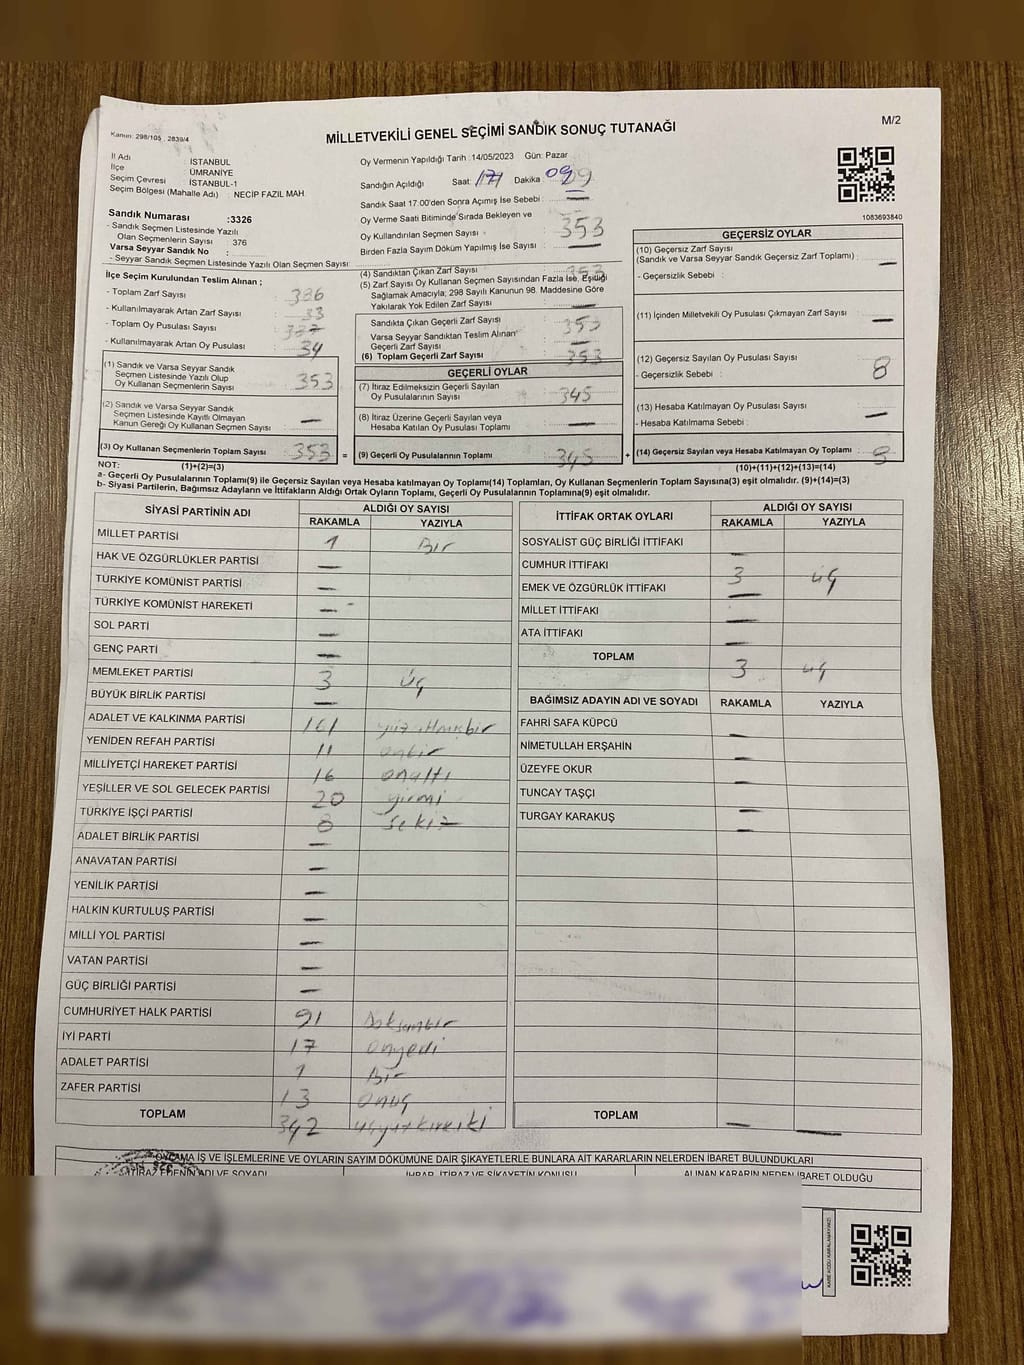 M/2
Kanun: 298/105 , 2839/4
MİLLETVEKİLİ GENEL SEÇİMİ SANDIK SONUÇ TUTANAĞI
İl Adı : İSTANBUL
İlçe : ÜMRANİYE
Seçim Çevresi : İSTANBUL-1
Seçim Bölgesi (Mahalle Adı) : NECİP FAZIL MAH.
Sandık Numarası :3326
- Sandık Seçmen Listesinde Yazılı
Olan Seçmenlerin Sayısı : 376
Varsa Seyyar Sandık No :
- Seyyar Sandık Seçmen Listesinde Yazılı Olan Seçmen Sayısı:
Oy Vermenin Yapıldığı Tarih : 14/05/2023 Gün: Pazar
Sandığın Açıldığı Saat: 17 Dakika 09
Sandık Saat 17:00'den Sonra Açımış İse Sebebi : —
Oy Verme Saati Bitiminde Sırada Bekleyen ve
Oy Kullandırılan Seçmen Sayısı : 353
Birden Fazla Sayım Döküm Yapılmış İse Sayısı : —
1083693840
İlçe Seçim Kurulundan Teslim Alınan ;
- Toplam Zarf Sayısı : 386
- Kullanılmayarak Artan Zarf Sayısı : 33
- Toplam Oy Pusulası Sayısı :
- Kullanılmayarak Artan Oy Pusulası : 34
(1) Sandık ve Varsa Seyyar Sandık
Seçmen Listesinde Yazılı Olup
Oy Kullanan Seçmenlerin Sayısı : 353
(2) Sandık ve Varsa Seyyar Sandık
Seçmen Listesinde Kayıtlı Olmayan
Kanun Gereği Oy Kullanan Seçmen Sayısı : —
(3) Oy Kullanan Seçmenlerin Toplam Sayısı : 353 =
(4) Sandıktan Çıkan Zarf Sayısı : 353
(5) Zarf Sayısı Oy Kullanan Seçmen Sayısından Fazla İse, Eşitliği
Sağlamak Amacıyla; 298 Sayılı Kanunun 98. Maddesine Göre
Yakılarak Yok Edilen Zarf Sayısı : —
Sandıkta Çıkan Geçerli Zarf Sayısı : 353
Varsa Seyyar Sandıktan Teslim Alınan
Geçerli Zarf Sayısı : —
(6) Toplam Geçerli Zarf Sayısı : 353
GEÇERLİ OYLAR
(7) İtiraz Edilmeksizin Geçerli Sayılan
Oy Pusulalarının Sayısı : 345
(8) İtiraz Üzerine Geçerli Sayılan veya
Hesaba Katılan Oy Pusulası Toplamı : —
(9) Geçerli Oy Pusulalarının Toplamı : 345 +
GEÇERSİZ OYLAR
(10) Geçersiz Zarf Sayısı
(Sandık ve Varsa Seyyar Sandık Geçersiz Zarf Toplamı) : —
- Geçersizlik Sebebi :
(11) İçinden Milletvekili Oy Pusulası Çıkmayan Zarf Sayısı : —
(12) Geçersiz Sayılan Oy Pusulası Sayısı : 8
- Geçersizlik Sebebi :
(13) Hesaba Katılmayan Oy Pusulası Sayısı : —
- Hesaba Katılmama Sebebi :
(14) Geçersiz Sayılan veya Hesaba Katılmayan Oy Toplamı : 8
NOT: (1)+(2)=(3) (10)+(11)+(12)+(13)=(14)
a- Geçerli Oy Pusulalarının Toplamı(9) ile Geçersiz Sayılan veya Hesaba Katılmayan Oy Toplamı(14) Toplamları, Oy Kullanan Seçmenlerin Toplam Sayısına(3) eşit olmalıdır. (9)+(14)=(3)
b- Siyasi Partilerin, Bağımsız Adayların ve İttifakların Aldığı Ortak Oyların Toplamı, Geçerli Oy Pusulalarının Toplamına(9) eşit olmalıdır.
SİYASİ PARTİNİN ADI ALDIĞI OY SAYISI
RAKAMLA YAZIYLA
MİLLET PARTİSİ 1 Bir
HAK VE ÖZGÜRLÜKLER PARTİSİ —
TÜRKİYE KOMÜNİST PARTİSİ —
TÜRKİYE KOMÜNİST HAREKETİ —
SOL PARTİ —
GENÇ PARTİ —
MEMLEKET PARTİSİ 3 üç
BÜYÜK BİRLİK PARTİSİ —
ADALET VE KALKINMA PARTİSİ 161 yüzatmışbir
YENİDEN REFAH PARTİSİ 11 onbir
MİLLİYETÇİ HAREKET PARTİSİ 16 onaltı
YEŞİLLER VE SOL GELECEK PARTİSİ 20 yirmi
TÜRKİYE İŞÇİ PARTİSİ 8 sekiz
ADALET BİRLİK PARTİSİ —
ANAVATAN PARTİSİ —
YENİLİK PARTİSİ —
HALKIN KURTULUŞ PARTİSİ —
MİLLİ YOL PARTİSİ —
VATAN PARTİSİ —
GÜÇ BİRLİĞİ PARTİSİ —
CUMHURİYET HALK PARTİSİ 91 Doksanbir
İYİ PARTİ 17 onyedi
ADALET PARTİSİ 1 Bir
ZAFER PARTİSİ 13 onüç
TOPLAM 342 üçyüzkırkiki
İTTİFAK ORTAK OYLARI ALDIĞI OY SAYISI
RAKAMLA YAZIYLA
SOSYALİST GÜÇ BİRLİĞİ İTTİFAKI —
CUMHUR İTTİFAKI 3 üç
EMEK VE ÖZGÜRLÜK İTTİFAKI —
MİLLET İTTİFAKI —
ATA İTTİFAKI —
TOPLAM 3 üç
BAĞIMSIZ ADAYIN ADI VE SOYADI RAKAMLA YAZIYLA
FAHRİ SAFA KÜPCÜ —
NİMETULLAH ERŞAHİN —
ÜZEYFE OKUR —
TUNCAY TAŞÇI —
TURGAY KARAKUŞ —
TOPLAM — —
OYLAMA İŞ VE İŞLEMLERİNE VE OYLARIN SAYIM DÖKÜMÜNE DAİR ŞİKAYETLERLE BUNLARA AİT KARARLARIN NELERDEN İBARET BULUNDUKLARI
İTİRAZ EDENİN ADI VE SOYADI İHBAR, İTİRAZ VE ŞİKAYETİN KONUSU ALINAN KARARIN NEDEN İBARET OLDUĞU
KARE KODU KARALAMAYINIZ!